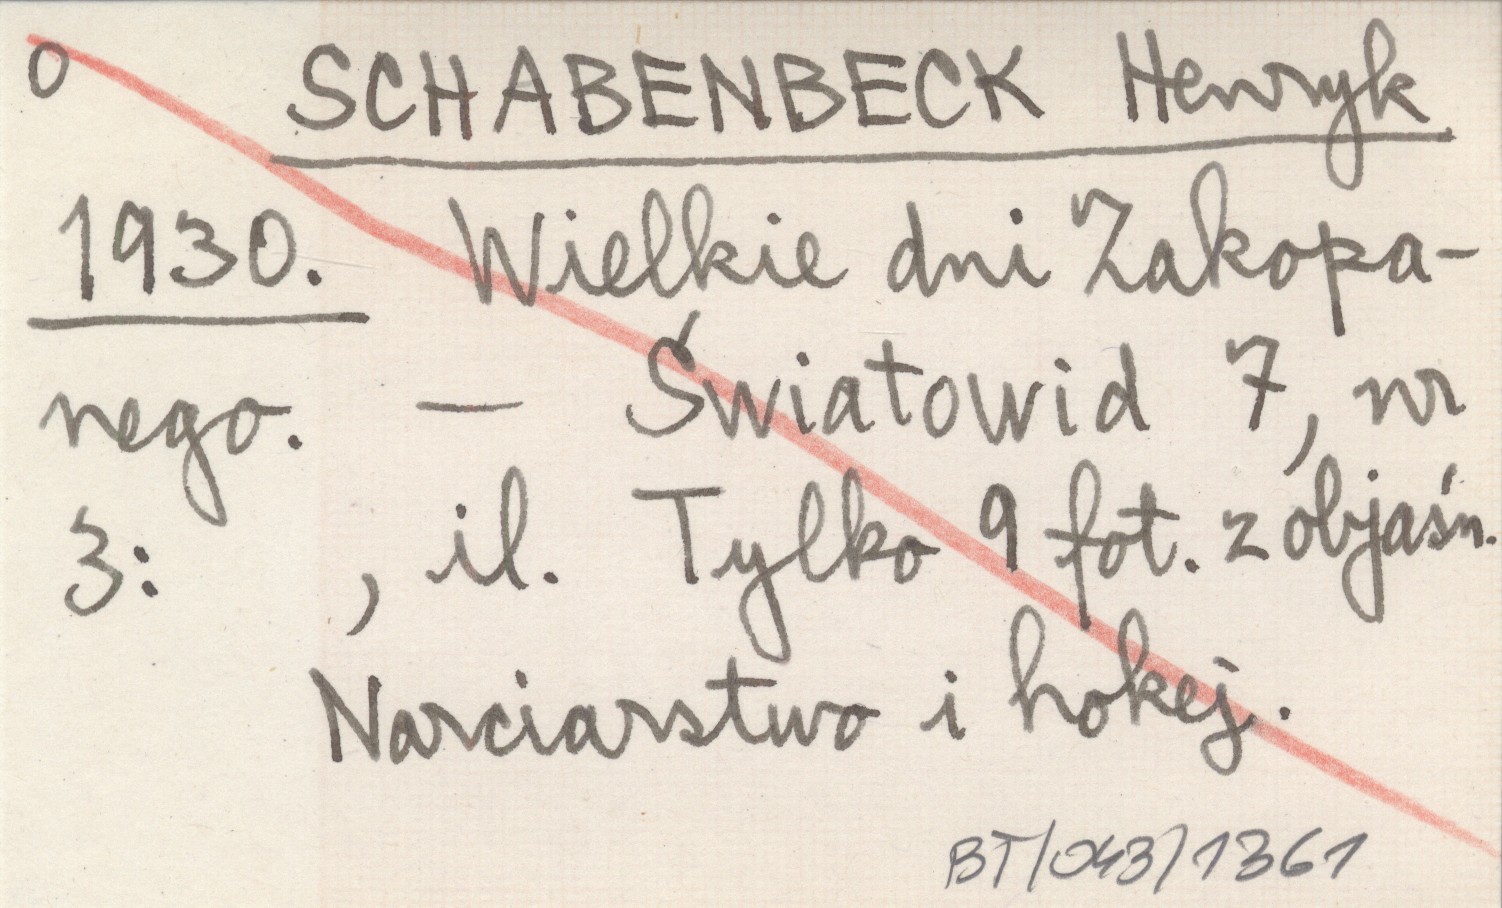 O SCHABENBECK Henryk
1930. Wielkie dni Zakopa-
nego. — Światowid 7, nr
3: , il. Tylko 9 fot. z objaśn.
Narciarstwo i hokej.
BT/043/1361